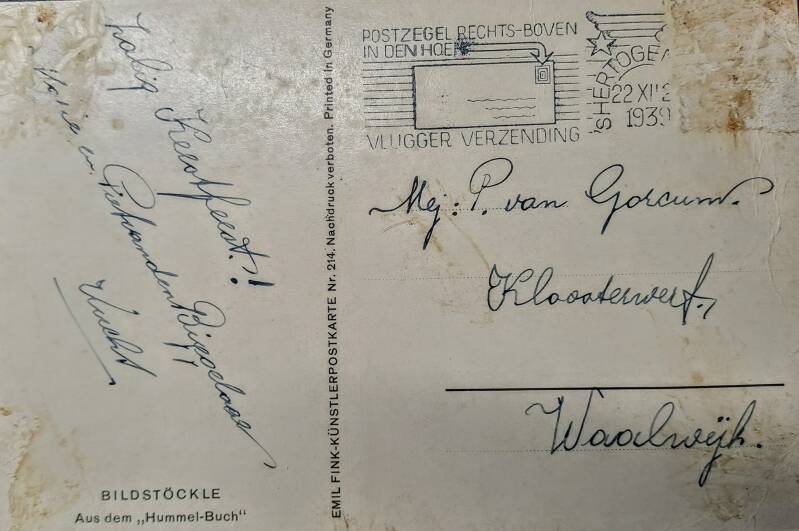 Zalig Kerstfeest!
Marie en
Piet van den
Vucht
BILDSTÖCKLE
Aus dem „Hummel-Buch"
EMIL FINK-KÜNSTLERPOSTKARTE Nr. 214. Nachdruck verboten. Printed in Germany
POSTZEGEL RECHTS-BOVEN
IN DEN HOEK
VLUGGER VERZENDING
SHERTOGE
22 XII
1939
Mej: P. van Gorcum.
Kloosterwerf,
Waalwijk.